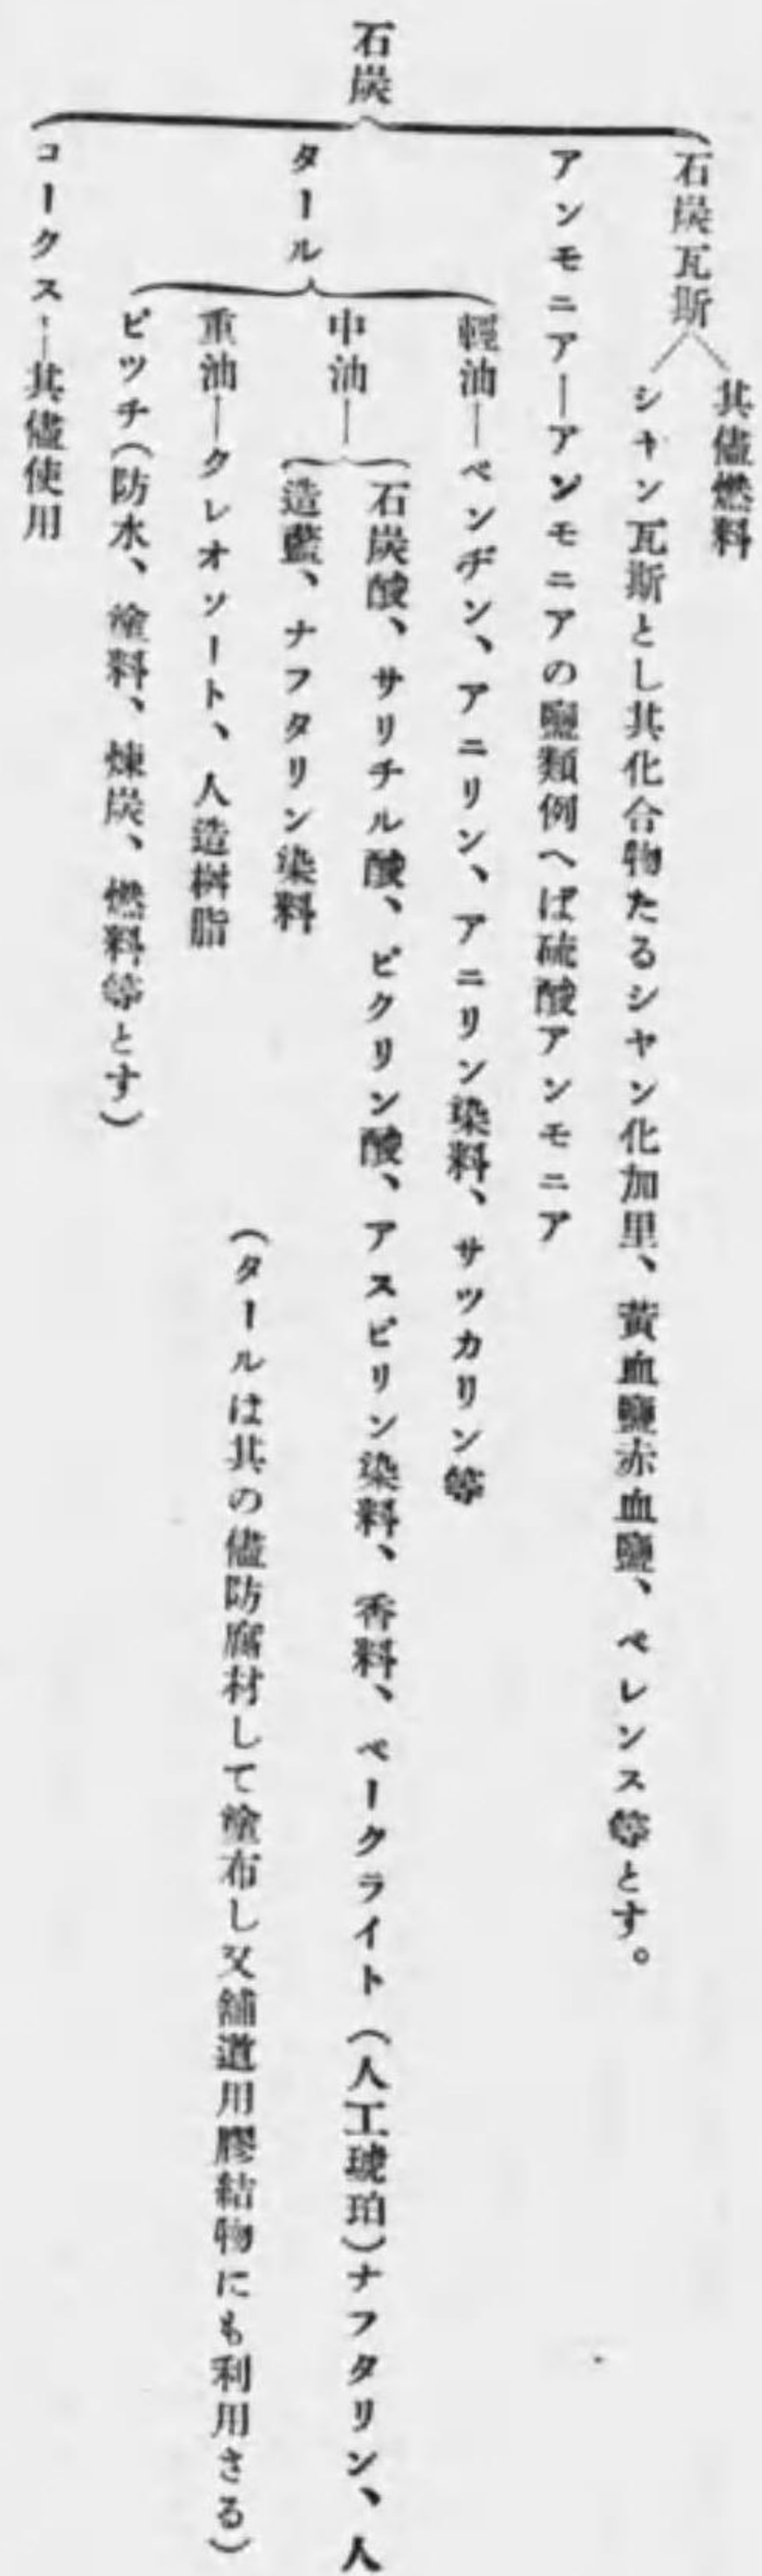 石炭
石炭瓦斯
其儘燃料
シヤン瓦斯とし其化合物たるシヤン化加里、黃血鹽赤血鹽、ベレンス等とす。
アンモニア―アンモニアの鹽類例へば硫酸アンモニア
タール
輕油―ベンヂン、アニリン、アニリン染料、サツカリン等
中油―
石炭酸、サリチル酸、ピクリン酸、アスピリン染料、香料、ベークライト（人工琥珀）ナフタリン、人
造藍、ナフタリン染料
重油―クレオソート、人造樹脂
（タールは其の儘防腐材して塗布し又舖道用膠結物にも利用さる）
ピツチ（防水、塗料、煉炭、燃料等とす）
コークス―其儘使用